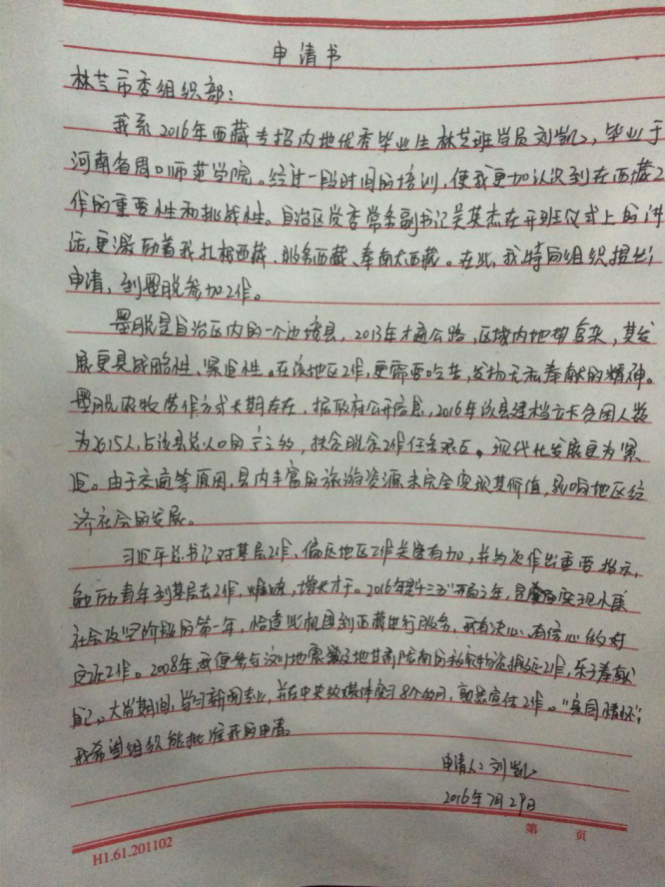 申请书
林芝市委组织部：
我系2016年西藏专招内地优秀毕业生林芝班学员刘凯，毕业于
河南省周口师范学院。经过一段时间的培训，使我更加认识到在西藏工
作的重要性和挑战性。自治区党委常务副书记吴英杰在开班仪式上的讲
话，更激励着我扎根西藏、服务西藏、奉献大西藏。在此，我特向组织提出
申请，到墨脱参加工作。
墨脱是自治区内的一个边境县，2013年才通公路，区域内地势复杂，其发
展更具战略性、紧迫性。在该地区工作，更需要吃苦，发扬无私奉献的精神。
墨脱农牧劳作方式长期存在，据政府公开信息，2016年该县建档立卡贫困人数
为2615人，占该县总人口的，扶贫脱贫工作任务艰巨。现代化发展更为紧
迫。由于交通等原因，县内丰富的旅游资源未完全实现其价值，影响地区经
济社会的发展。
习近平总书记对基层工作、偏远地区工作关爱有加，并多次作出重要指示，
勉励青年到基层去工作，增长才干。2016年是"十三五"开局之年，是实现小康
社会攻坚阶段的第一年，恰逢此机遇到西藏进行服务，我有决心、有信心做好
这项工作。2008年我便参与汶川地震及地甘肃陇南的救援物资捐赠工作，乐于奉献
自己。大学期间，学习新闻专业，并在中央级媒体实习8个多月，熟悉宣传工作。"家国情怀"，
我希望组织能批准我的申请。
申请人：刘凯
2016年7月29日
第 页
H1.61.201102